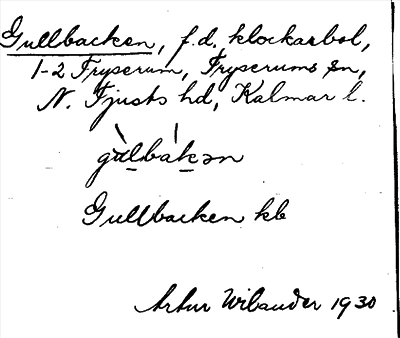 Gullbacken, f.d. klockarbol,
1-2 Fryserum, Fryserums sn,
N. Tjusts hd, Kalmar l.
gùlbákən
Gullbacken kb
Artur Wibander 1930